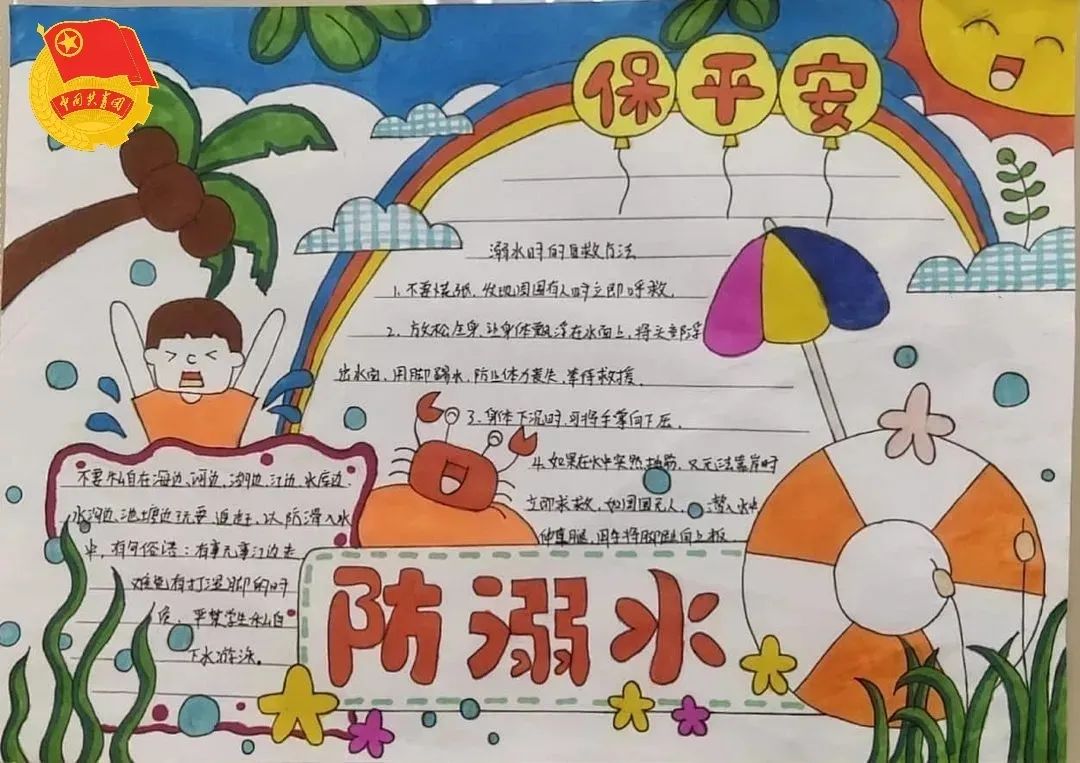 中国共青团
保平安
溺水时的自救方法
1.不要慌张,发现周围有人时立即呼救,
2、放松全身,让身体飘浮在水面上,将头部浮
出水面,用脚踢水,防止体力丧失,等待救援,
3、身体下沉时,可将手掌向下压,
4.如果在水中突然抽筋,又无法靠岸时
立即求救,如周围无人,潜入水中
伸直腿,用手将脚趾向上板
不要私自在海边、河边、湖边、江边、水库边、
水沟边、池塘边玩耍、追赶,以防滑入水
中,有句俗话:有事无事江边走
难免有打湿脚的时
候,严禁学生私自
下水游泳。
防溺水